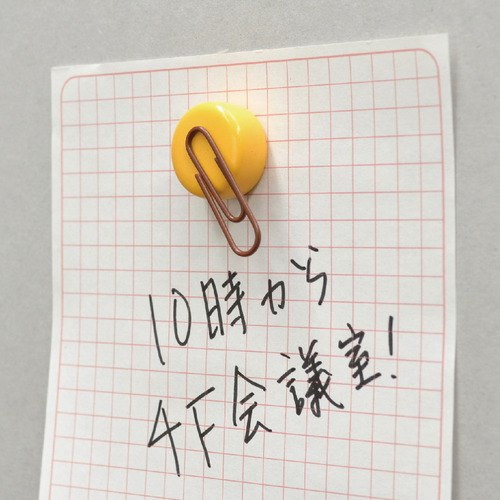 10時から
4F会議室!